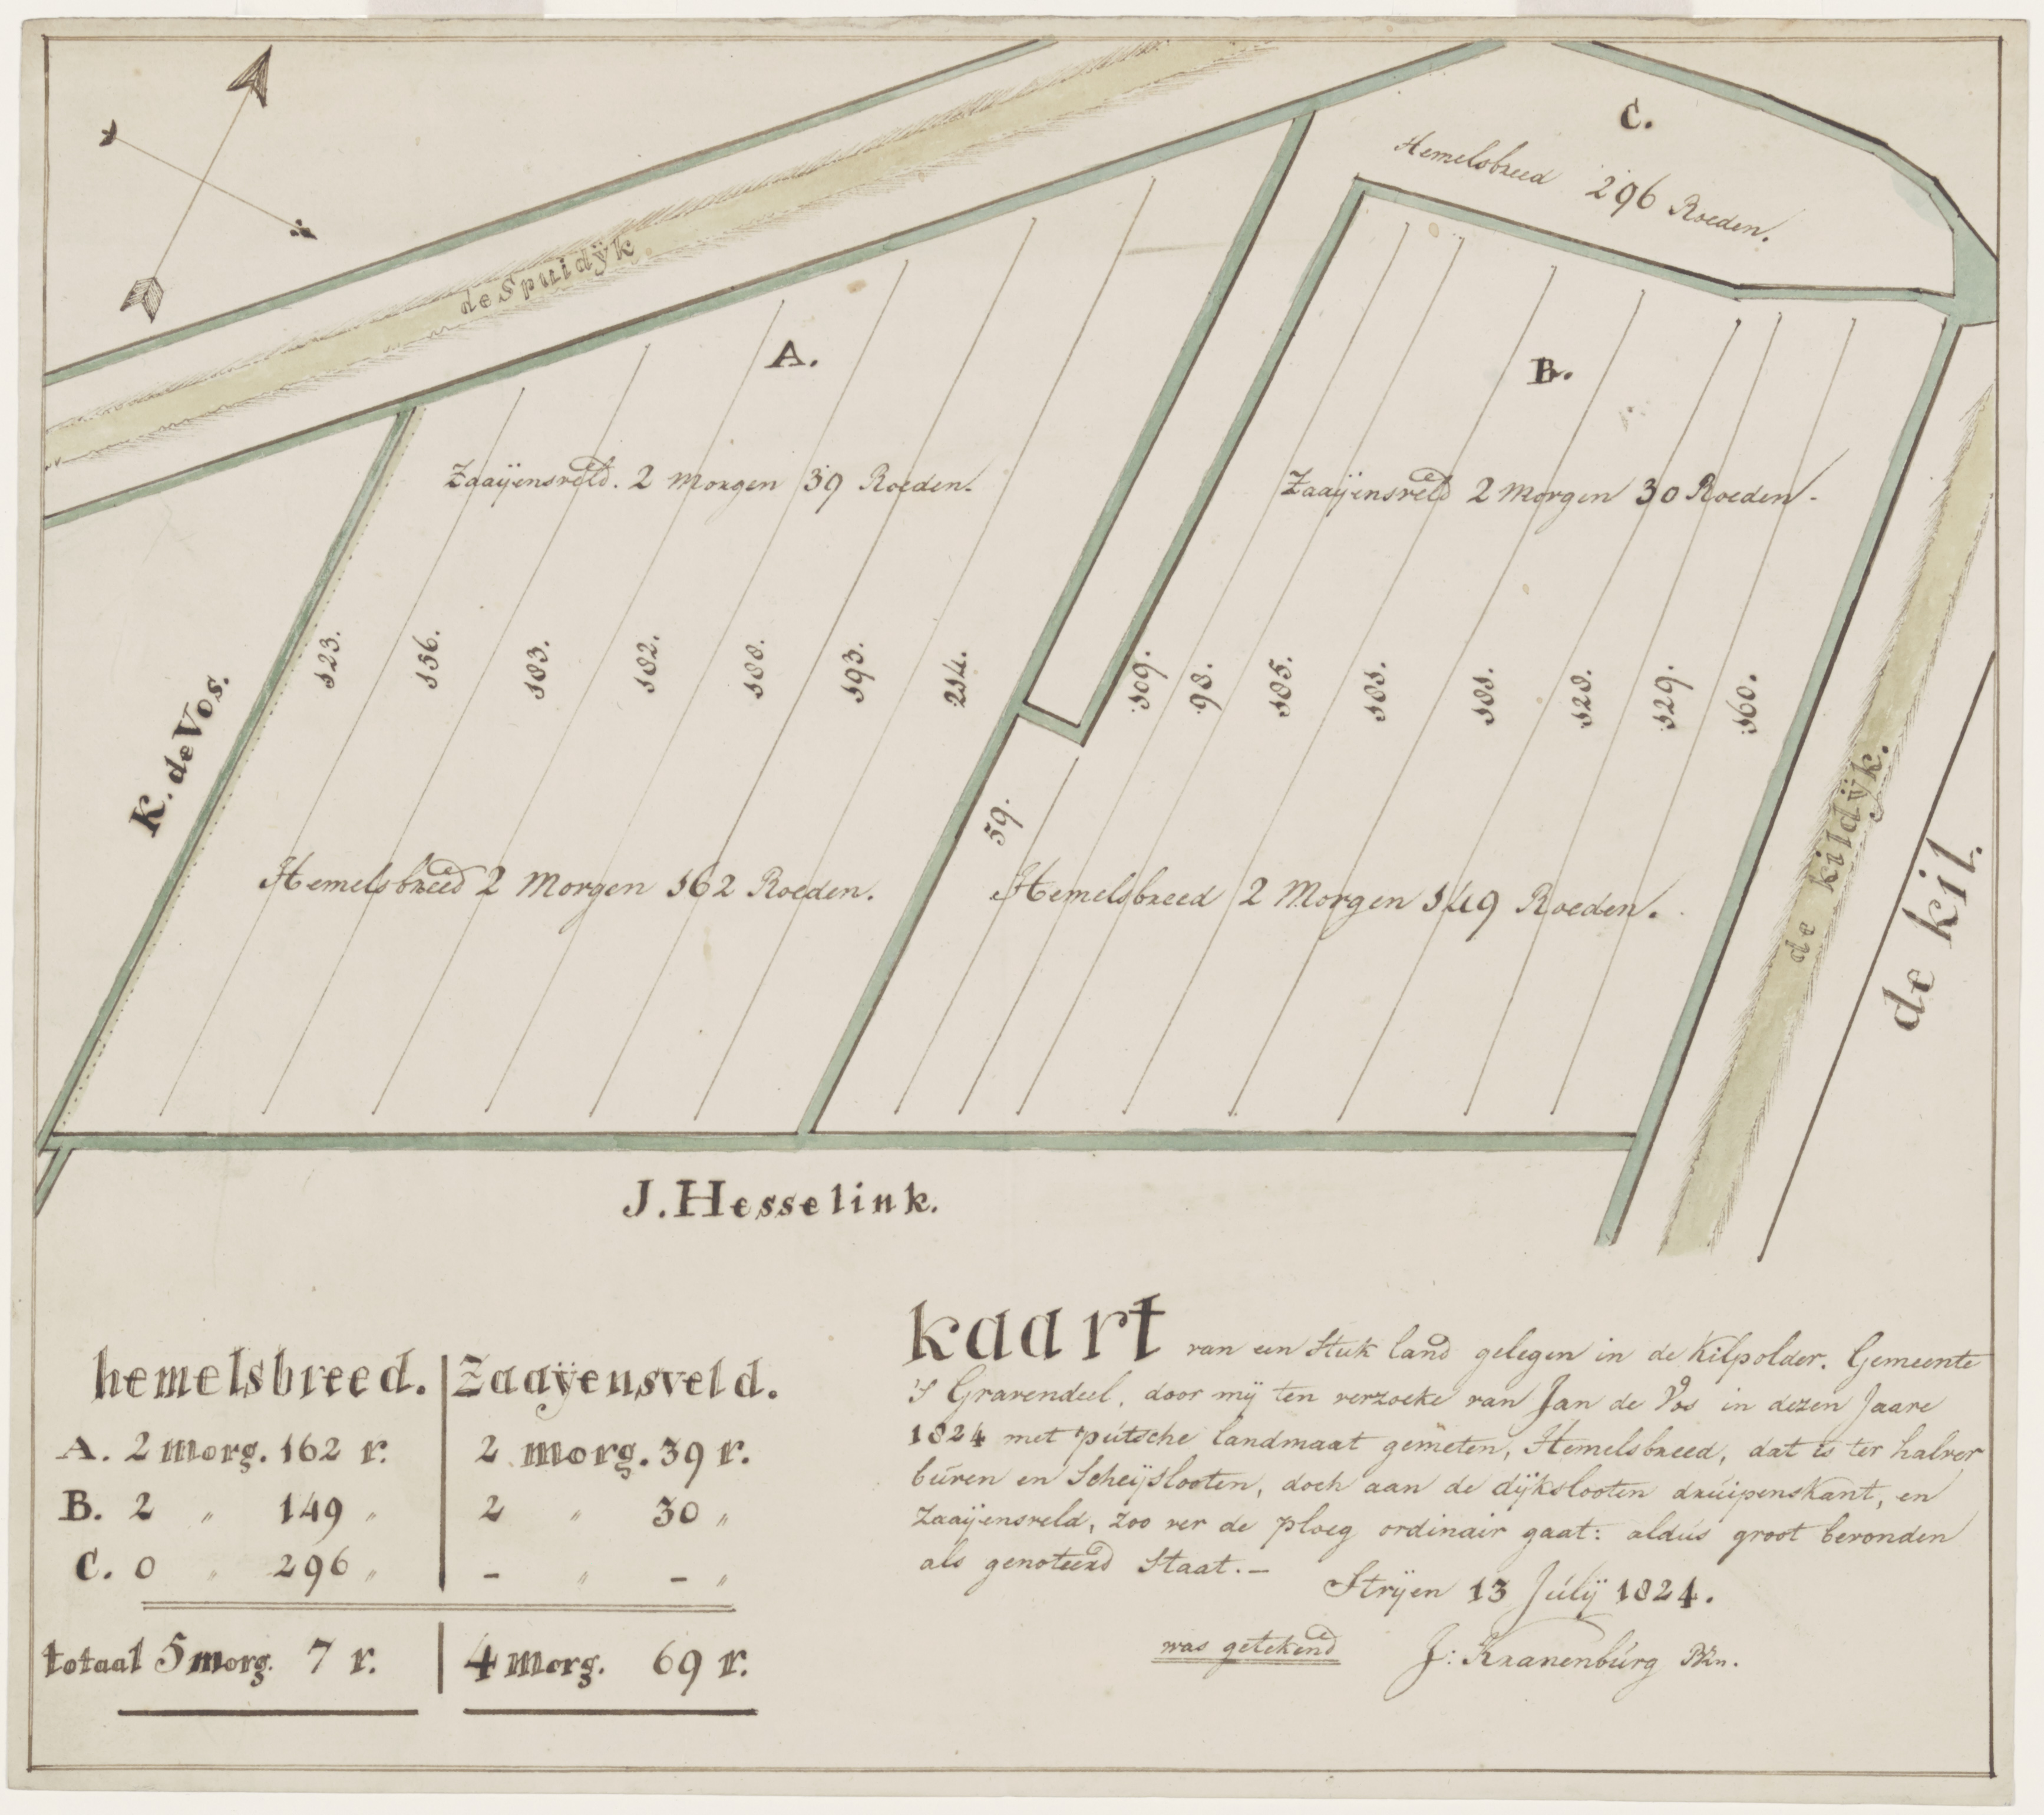 C.
Hemelsbreed 296 Roeden.
de Spuidÿk
A.
B.
Zaaÿensveld. 2 Morgen 39 Roeden.
Zaaÿensveld 2 Morgen 30 Roeden.
K. de Vos.
123.
156.
183.
182.
188.
193.
214.
59.
109.
98.
185.
181.
181.
128.
129.
160.
de kildÿk.
de kil.
Hemelsbreed 2 Morgen 162 Roeden.
Hemelsbreed 2 Morgen 149 Roeden.
J. Hesselink.
hemelsbreed. zaaÿensveld.
A. 2 morg. 162 r. 2 morg. 39 r.
B. 2 " 149 " 2 " 30 "
C. 0 " 296 " - " - "
totaal 5 morg. 7 r. 4 morg. 69 r.
kaart van een Stuk land gelegen in de Kilpolder. Gemeente
'S Gravendeel, door mÿ ten verzoeke van Jan de Vos in dezen Jaare
1824 met putsche landmaat gemeten, Hemelsbreed, dat is ter halver
buren en Scheÿslooten, doch aan de dÿkslooten druipenskant, en
Zaaÿensveld, zoo ver de ploeg ordinair gaat: aldus groot bevonden
als genoteerd Staat.-
Strÿen 13 Julÿ 1824.
was getekend J: Kranenburg